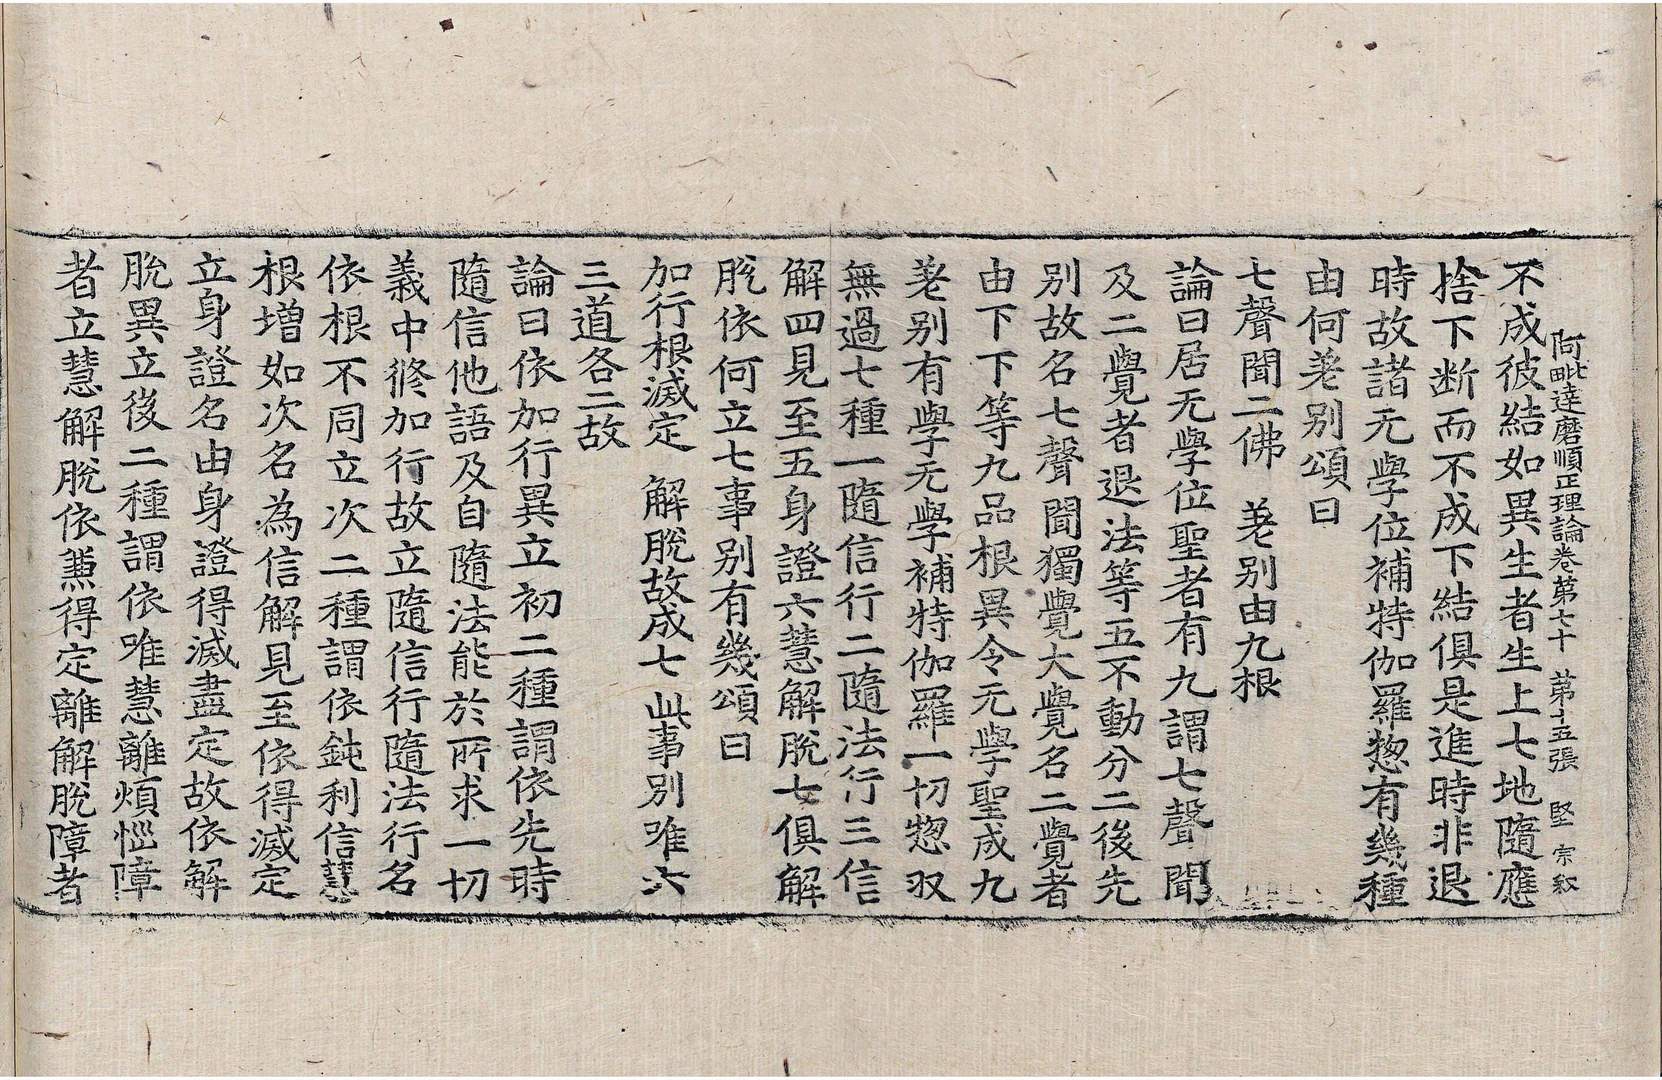 阿毗達磨順正理論卷第七十　第十五張　堅　宗叙
不成彼結如異生者生上七地隨應
捨下断而不成下結俱是進時非退
時故諸无學位補特伽羅惣有幾種
由何差別頌曰
七聲聞二佛　差別由九根
論曰居无學位聖者有九謂七聲聞
及二覺者退法等五不動分二後先
別故名七聲聞獨覺大覺名二覺者
由下下等九品根異令无學聖成九
差別有學无學補特伽羅一切惣收
無過七種一隨信行二隨法行三信
解四見至五身證六慧解脫七俱解
脫依何立七事別有幾頌曰
加行根滅定　解脫故成七此事別唯六
三道各二故
論曰依加行異立初二種謂依先時
隨信他語及自隨法能於所求一切
義中修加行故立隨信行隨法行名
依根不同立次二種謂依鈍利信慧
根增如次名為信解見至依得滅定
立身證名由身證得滅盡定故依解
脫異立後二種謂依唯慧離煩惱障
者立慧解脫依兼得定離解脫障者